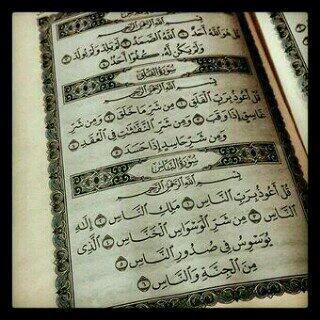 بِسْمِ ٱللَّهِ ٱلرَّحْمَٰنِ ٱلرَّحِيمِ
قُلْ هُوَ ٱللَّهُ أَحَدٌ ١ ٱللَّهُ ٱلصَّمَدُ ٢ لَمْ يَلِدْ
وَلَمْ يُولَدْ ٣ وَلَمْ يَكُن لَّهُۥ كُفُوًا أَحَدٌ ٤
سُورَةُ الْفَلَقِ
بِسْمِ ٱللَّهِ ٱلرَّحْمَٰنِ ٱلرَّحِيمِ
قُلْ أَعُوذُ بِرَبِّ ٱلْفَلَقِ ١ مِن شَرِّ مَا خَلَقَ ٢ وَمِن شَرِّ
غَاسِقٍ إِذَا وَقَبَ ٣ وَمِن شَرِّ ٱلنَّفَّٰثَٰتِ فِى ٱلْعُقَدِ ٤
وَمِن شَرِّ حَاسِدٍ إِذَا حَسَدَ ٥
سُورَةُ النَّاسِ
بِسْمِ ٱللَّهِ ٱلرَّحْمَٰنِ ٱلرَّحِيمِ
قُلْ أَعُوذُ بِرَبِّ ٱلنَّاسِ ١ مَلِكِ ٱلنَّاسِ ٢ إِلَٰهِ
ٱلنَّاسِ ٣ مِن شَرِّ ٱلْوَسْوَاسِ ٱلْخَنَّاسِ ٤ ٱلَّذِى
يُوَسْوِسُ فِى صُدُورِ ٱلنَّاسِ ٥
مِنَ ٱلْجِنَّةِ وَٱلنَّاسِ ٦